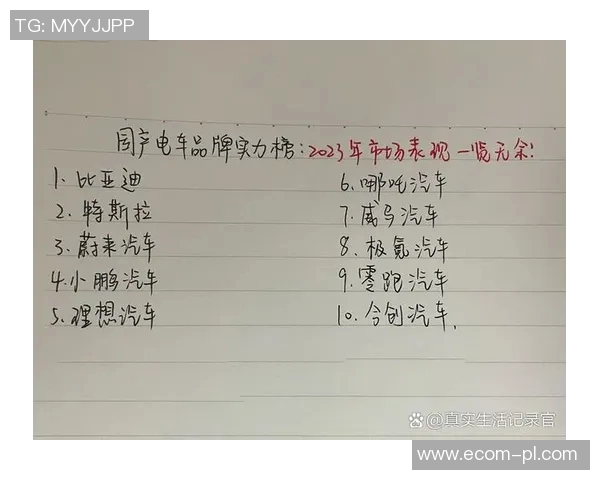 TG: MYYJJPP
国产电车品牌实力榜:2023年市场表现一览无余!
1. 比亚迪
2. 特斯拉
3. 蔚来汽车
4. 小鹏汽车
5. 理想汽车
6. 哪吒汽车
7. 威马汽车
8. 极氪汽车
9. 零跑汽车
10. 今创汽车.
@真实生活记录官
www.ecom-pl.com